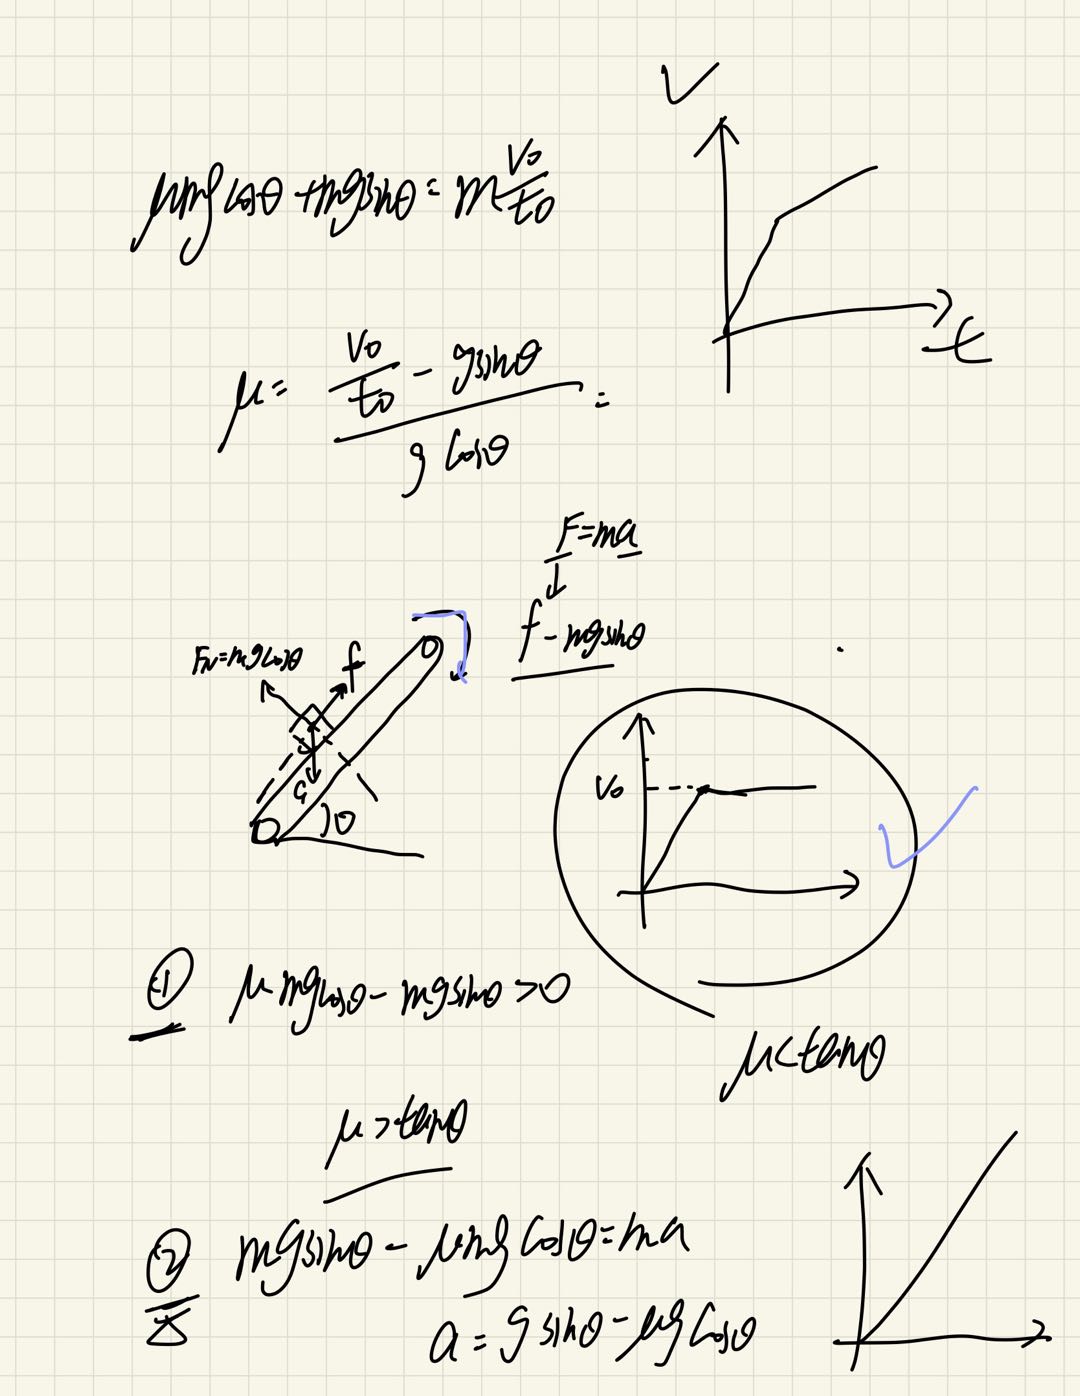 V
μmg cosθ + mgsinθ = m V₀/t₀
t
μ = (V₀/t₀ - gsinθ)/(g cosθ) =
F=ma
↓
f - mgsinθ
F_N=mgcosθ
f
G
θ
V₀
① μmgcosθ - mgsinθ >0
μ<tanθ
μ>tanθ
② mgsinθ - μmg cosθ=ma
a = gsinθ - μg cosθ